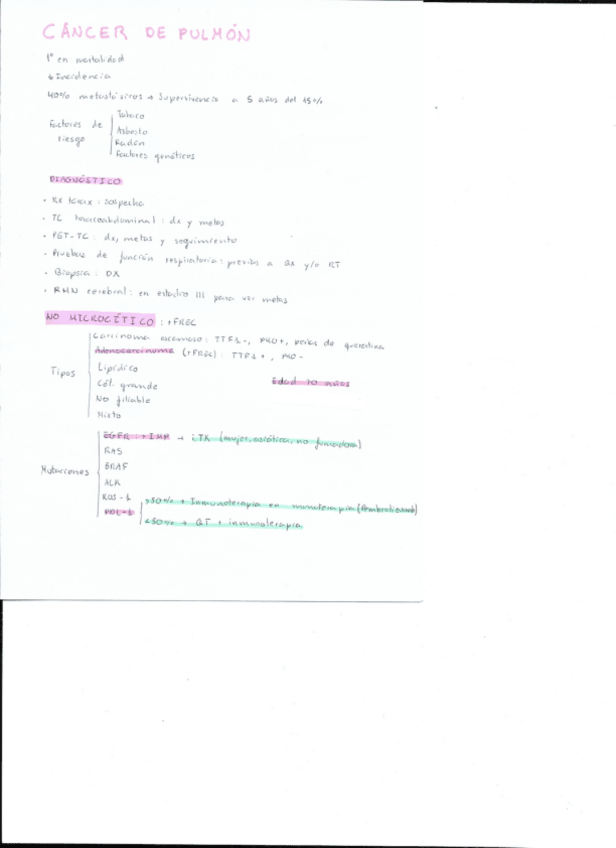 CÁNCER DE PULMÓN
1º en mortalidad
↓ Incidencia
40% metastásicos → Supervivencia a 5 años del 15%
Factores de riesgo
Tabaco
Asbesto
Radón
Factores genéticos
DIAGNÓSTICO
• Rx tórax : sospecha
• TC toracoabdominal : dx y metas
• PET-TC : dx, metas y seguimiento
• Pruebas de función respiratoria : previas a Qx y/o RT
• Biopsia : DX
• RMN cerebral : en estadio III para ver metas
NO MICROCÍTICO : +FREC
Tipos
Carcinoma escamoso : TTF1 -, P40+, perlas de queratina
Adenocarcinoma (+FREC) : TTF1 +, P40 -
Lipídico
Cél. grande
Edad 70 años
No filiable
Mixto
Mutaciones
EGFR : +IMP → iTK (mujer, asiática, no fumadora)
RAS
BRAF
ALK
ROS-1
PDL-1
>50% → Inmunoterapia en monoterapia
<50% → QT + inmunoterapia